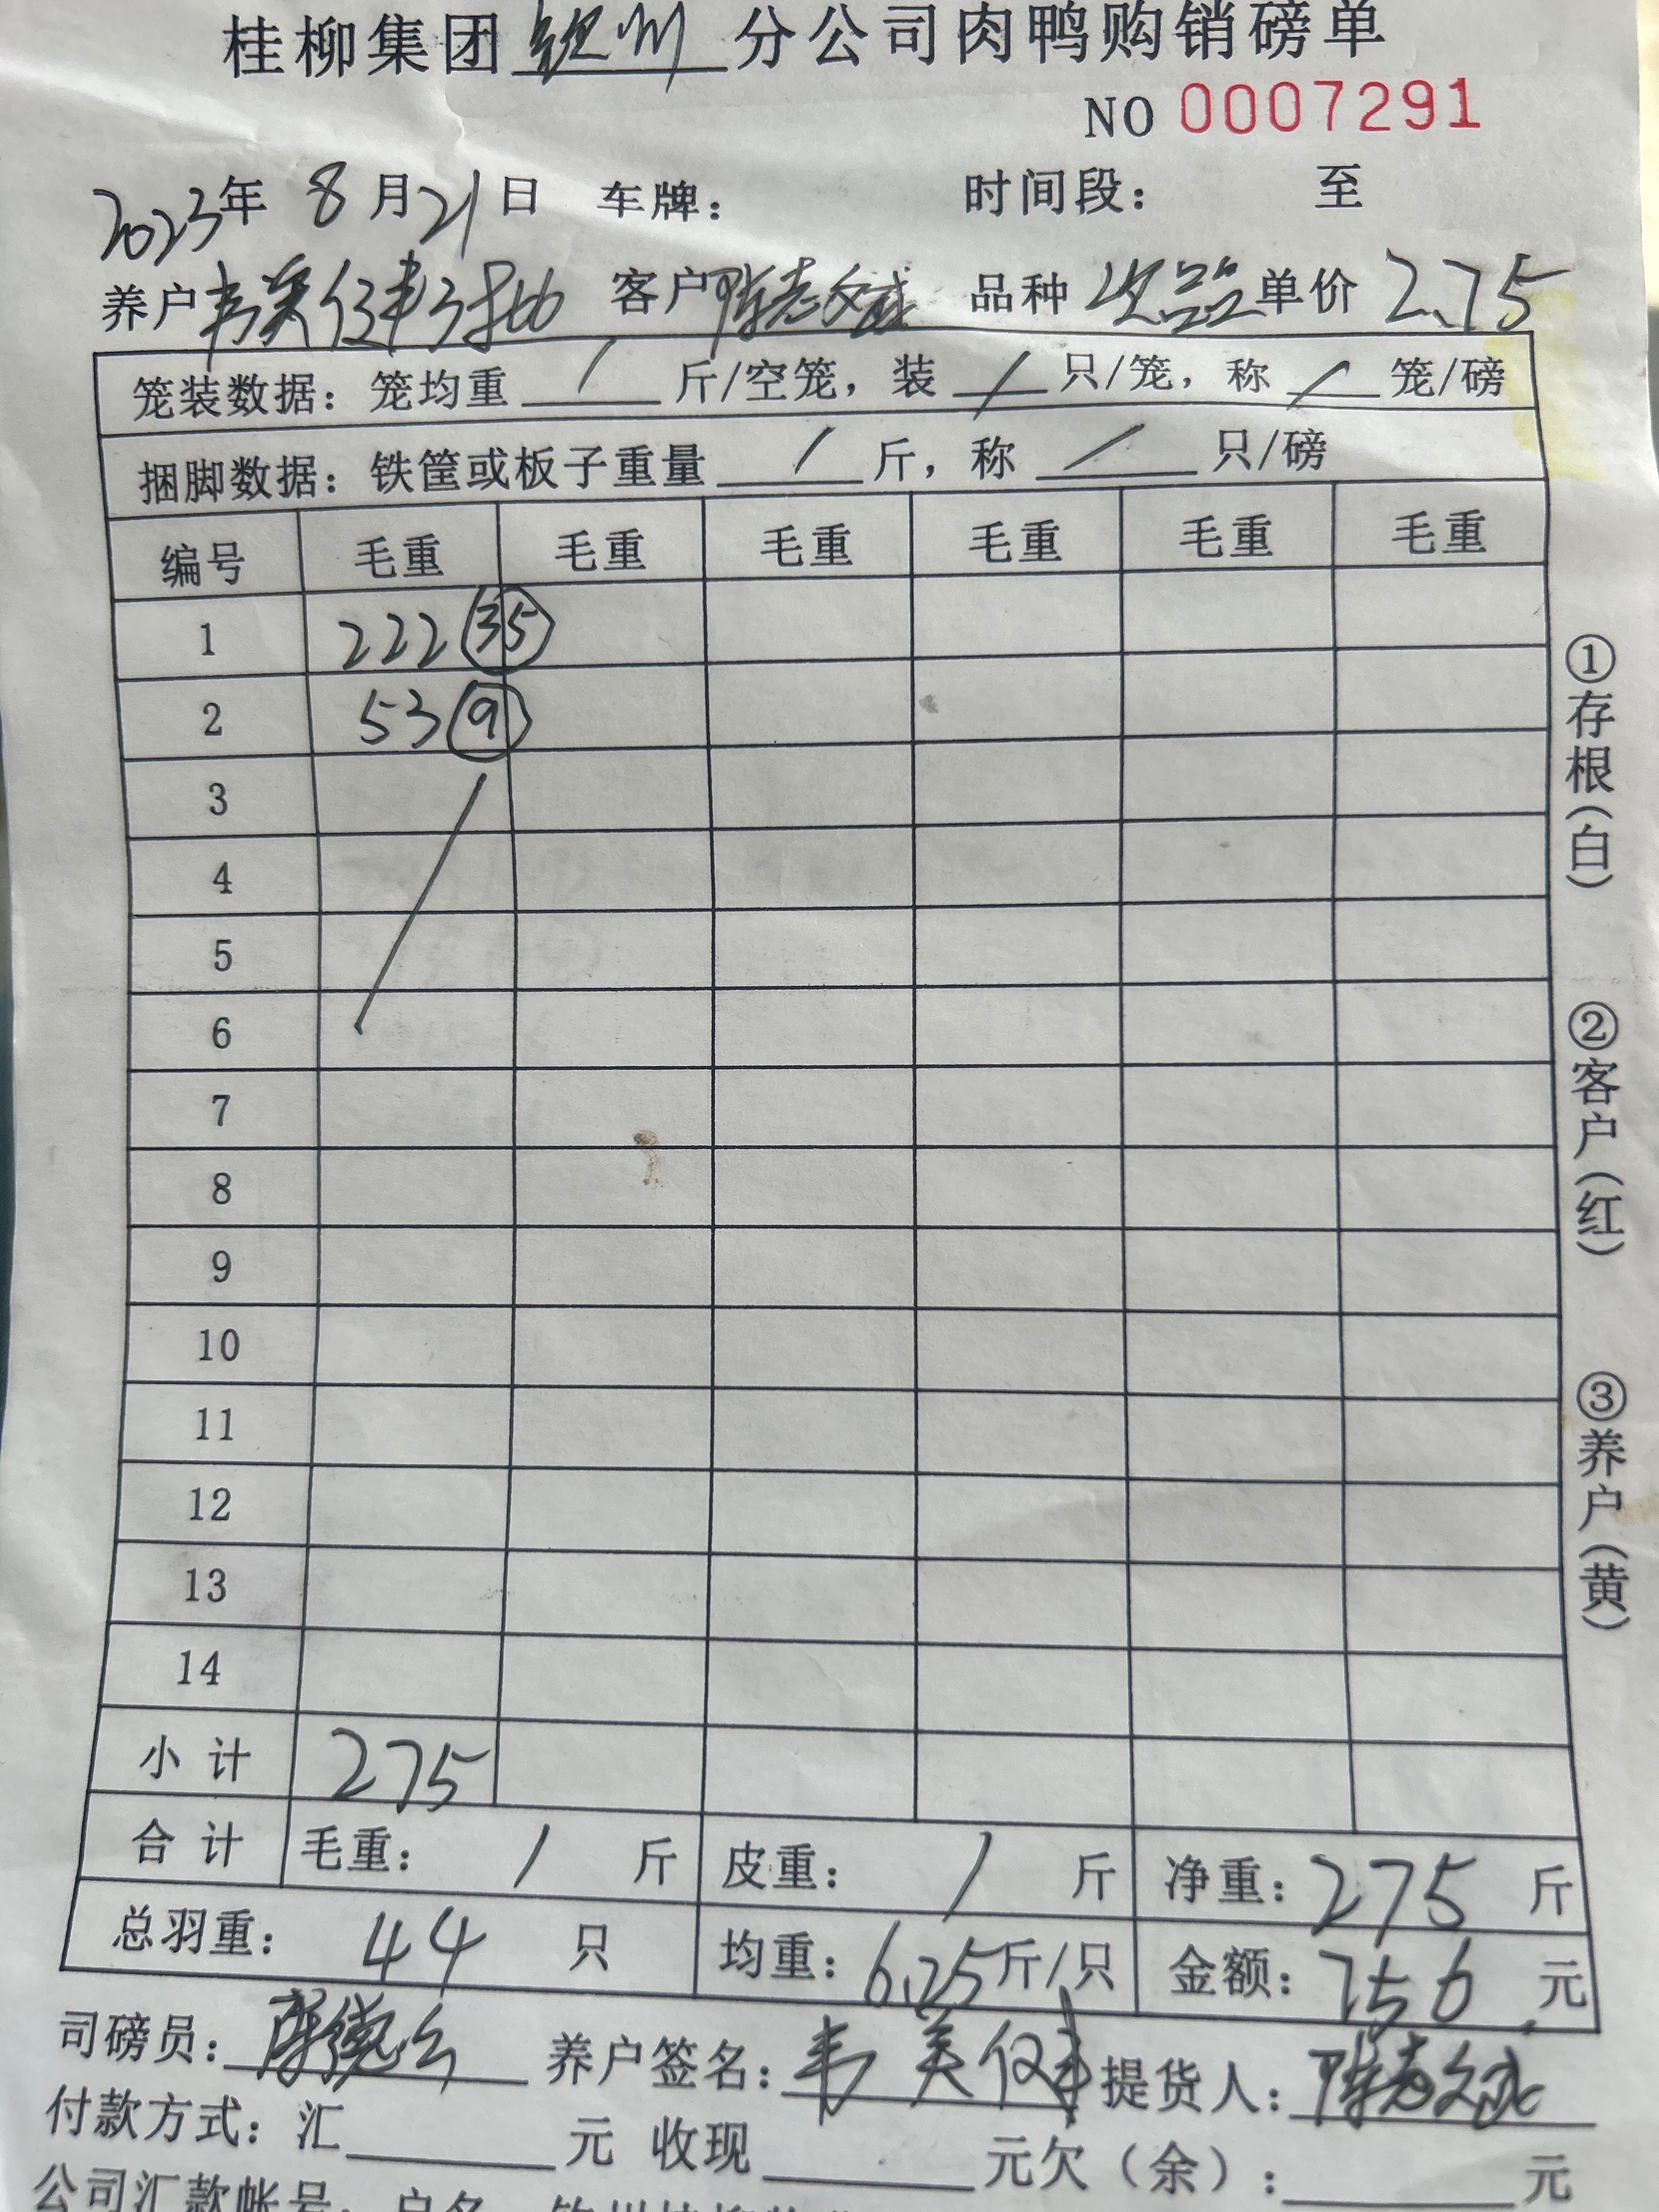 桂柳集团钦州分公司肉鸭购销磅单
NO 0007291
2023年 8月21日 车牌： 时间段： 至
养户韦美仅 客户陈志斌 品种 次品 单价 2.75
笼装数据：笼均重 / 斤/空笼，装 / 只/笼，称 / 笼/磅
捆脚数据：铁筐或板子重量 / 斤，称 / 只/磅
编号 毛重 毛重 毛重 毛重 毛重 毛重
1 222 35
2 53 9
3
4
5
6
7
8
9
10
11
12
13
14
小计 275
合计 毛重： / 斤 皮重： / 斤 净重：275斤
总羽重： 44 只 均重：6.25斤/只 金额：756元
司磅员： 养户签名：韦美仅 提货人：陈志斌
付款方式：汇 元 收现 元欠（余）： 元
公司汇款帐号：户名：钦州桂柳
①存根（白）
②客户（红）
③养户（黄）